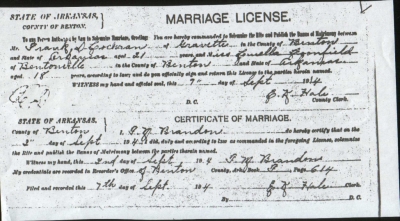 STATE OF ARKANSAS,
COUNTY OF BENTON.
MARRIAGE LICENSE.
To any Person Authorized by Law to Solemnize Marriage, Greeting:
You are hereby commanded to Solemnize the Rite and Publish the Banns of Matrimony between
Mr. Frank S. Cochran of Gravette in the County of Benton
and State of Arkansas aged 21 years, and Miss
of Bentonville in the County of Benton and State of Arkansas
aged 18 years, according to law; and do you officially sign and return this License to the parties herein named.
WITNESS my hand and official seal, this 7" day of Sept 1914
E. K. Hale
D. C. County Clerk.
STATE OF ARKANSAS,
CERTIFICATE OF MARRIAGE.
County of Benton I, T. M. Brandon do hereby certify that on the
2" day of Sept 1914 I did, duly and according to law as commanded in the foregoing License, solemnize
the Rite and publish the Banns of Matrimony between the parties therein named.
Witness my hand, this 2nd of Sept 1914 T. M. Brandon
My credentials are recorded in Recorder's Office of Benton County, Ark., Book Page 614
Filed and recorded this 7th day of Sept 1914 E. K. Hale Clerk.
By D. C.